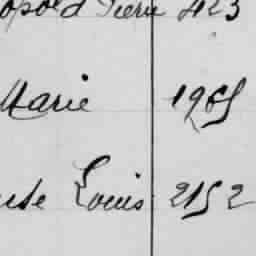 opold Pierre 423
Marie 1965
uste Louis 2152